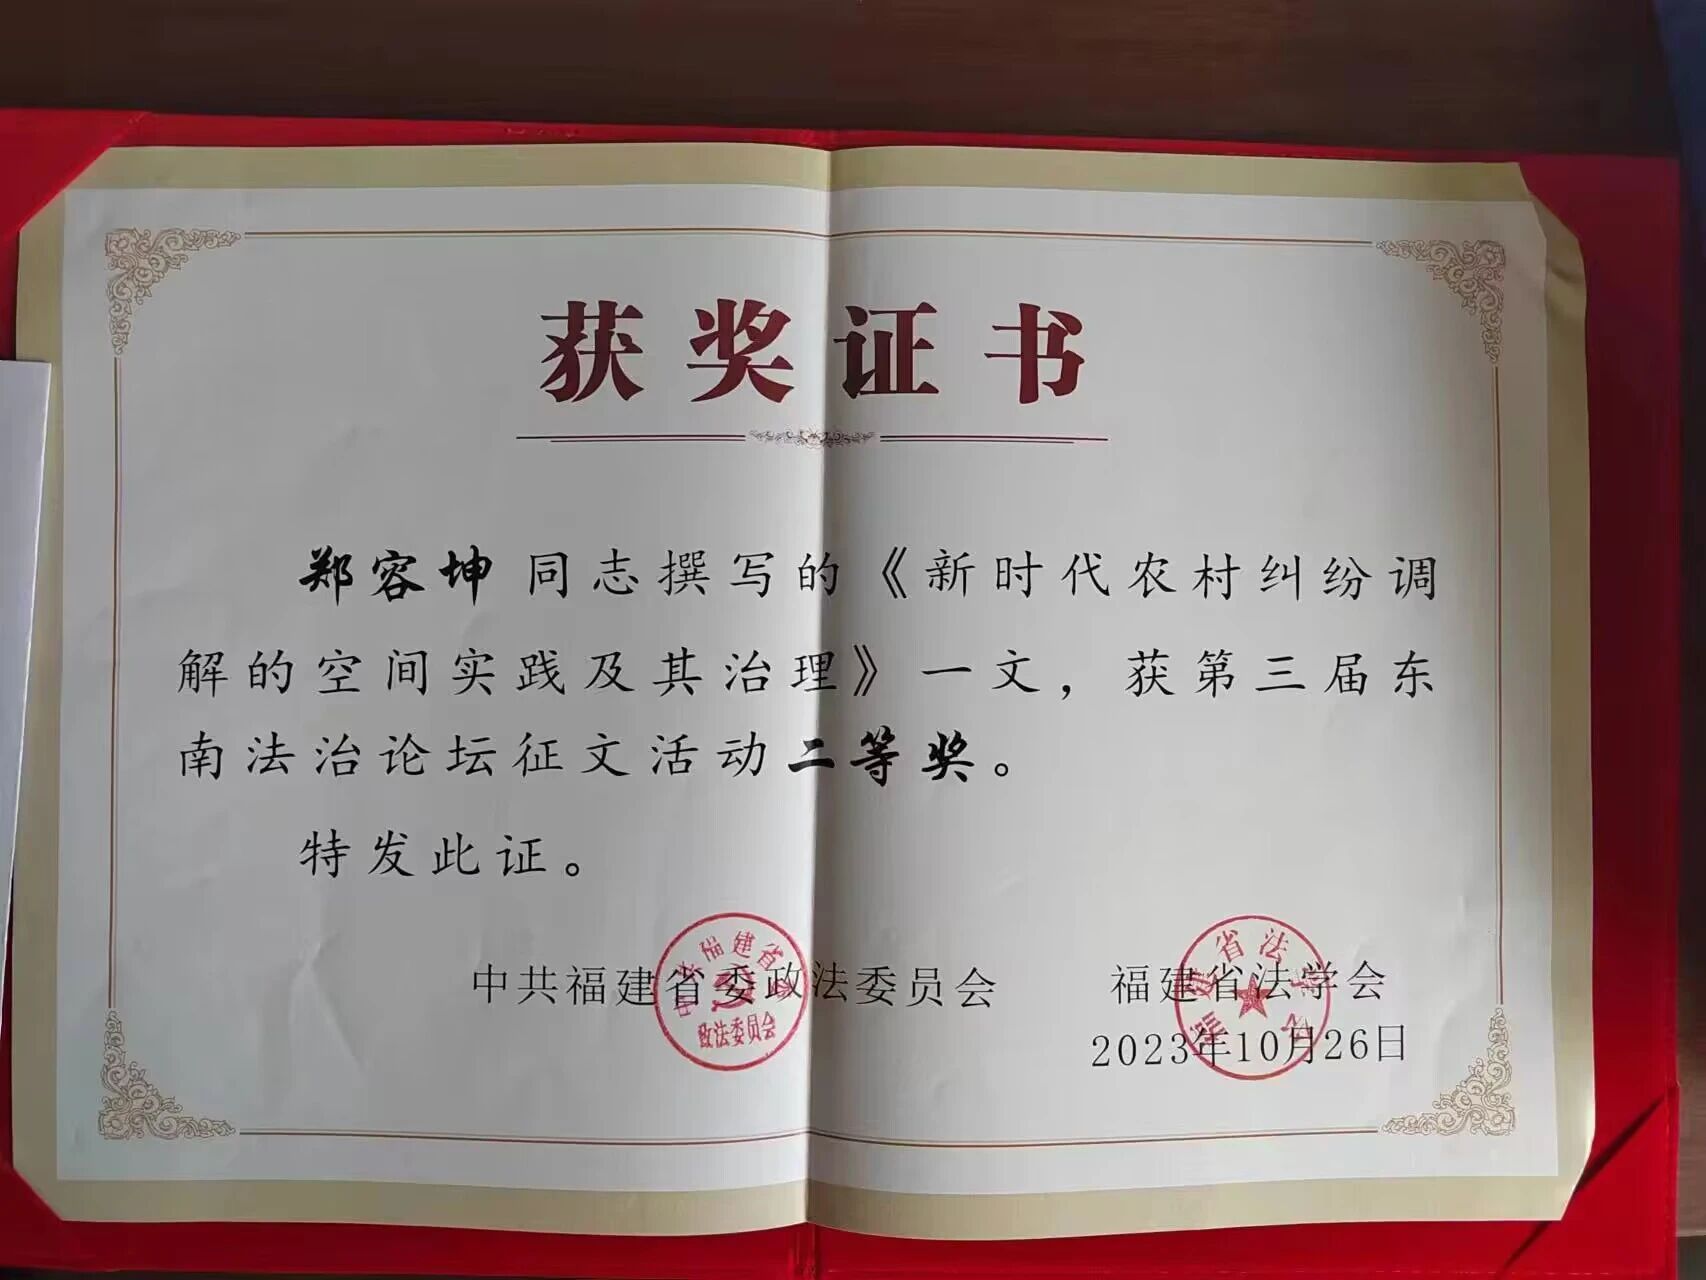 获奖证书
郑容坤同志撰写的《新时代农村纠纷调
解的空间实践及其治理》一文，获第三届东
南法治论坛征文活动二等奖。
特发此证。
中共福建省委政法委员会 福建省法学会
2023年10月26日
中共福建省委
政法委员会
福建省法学会